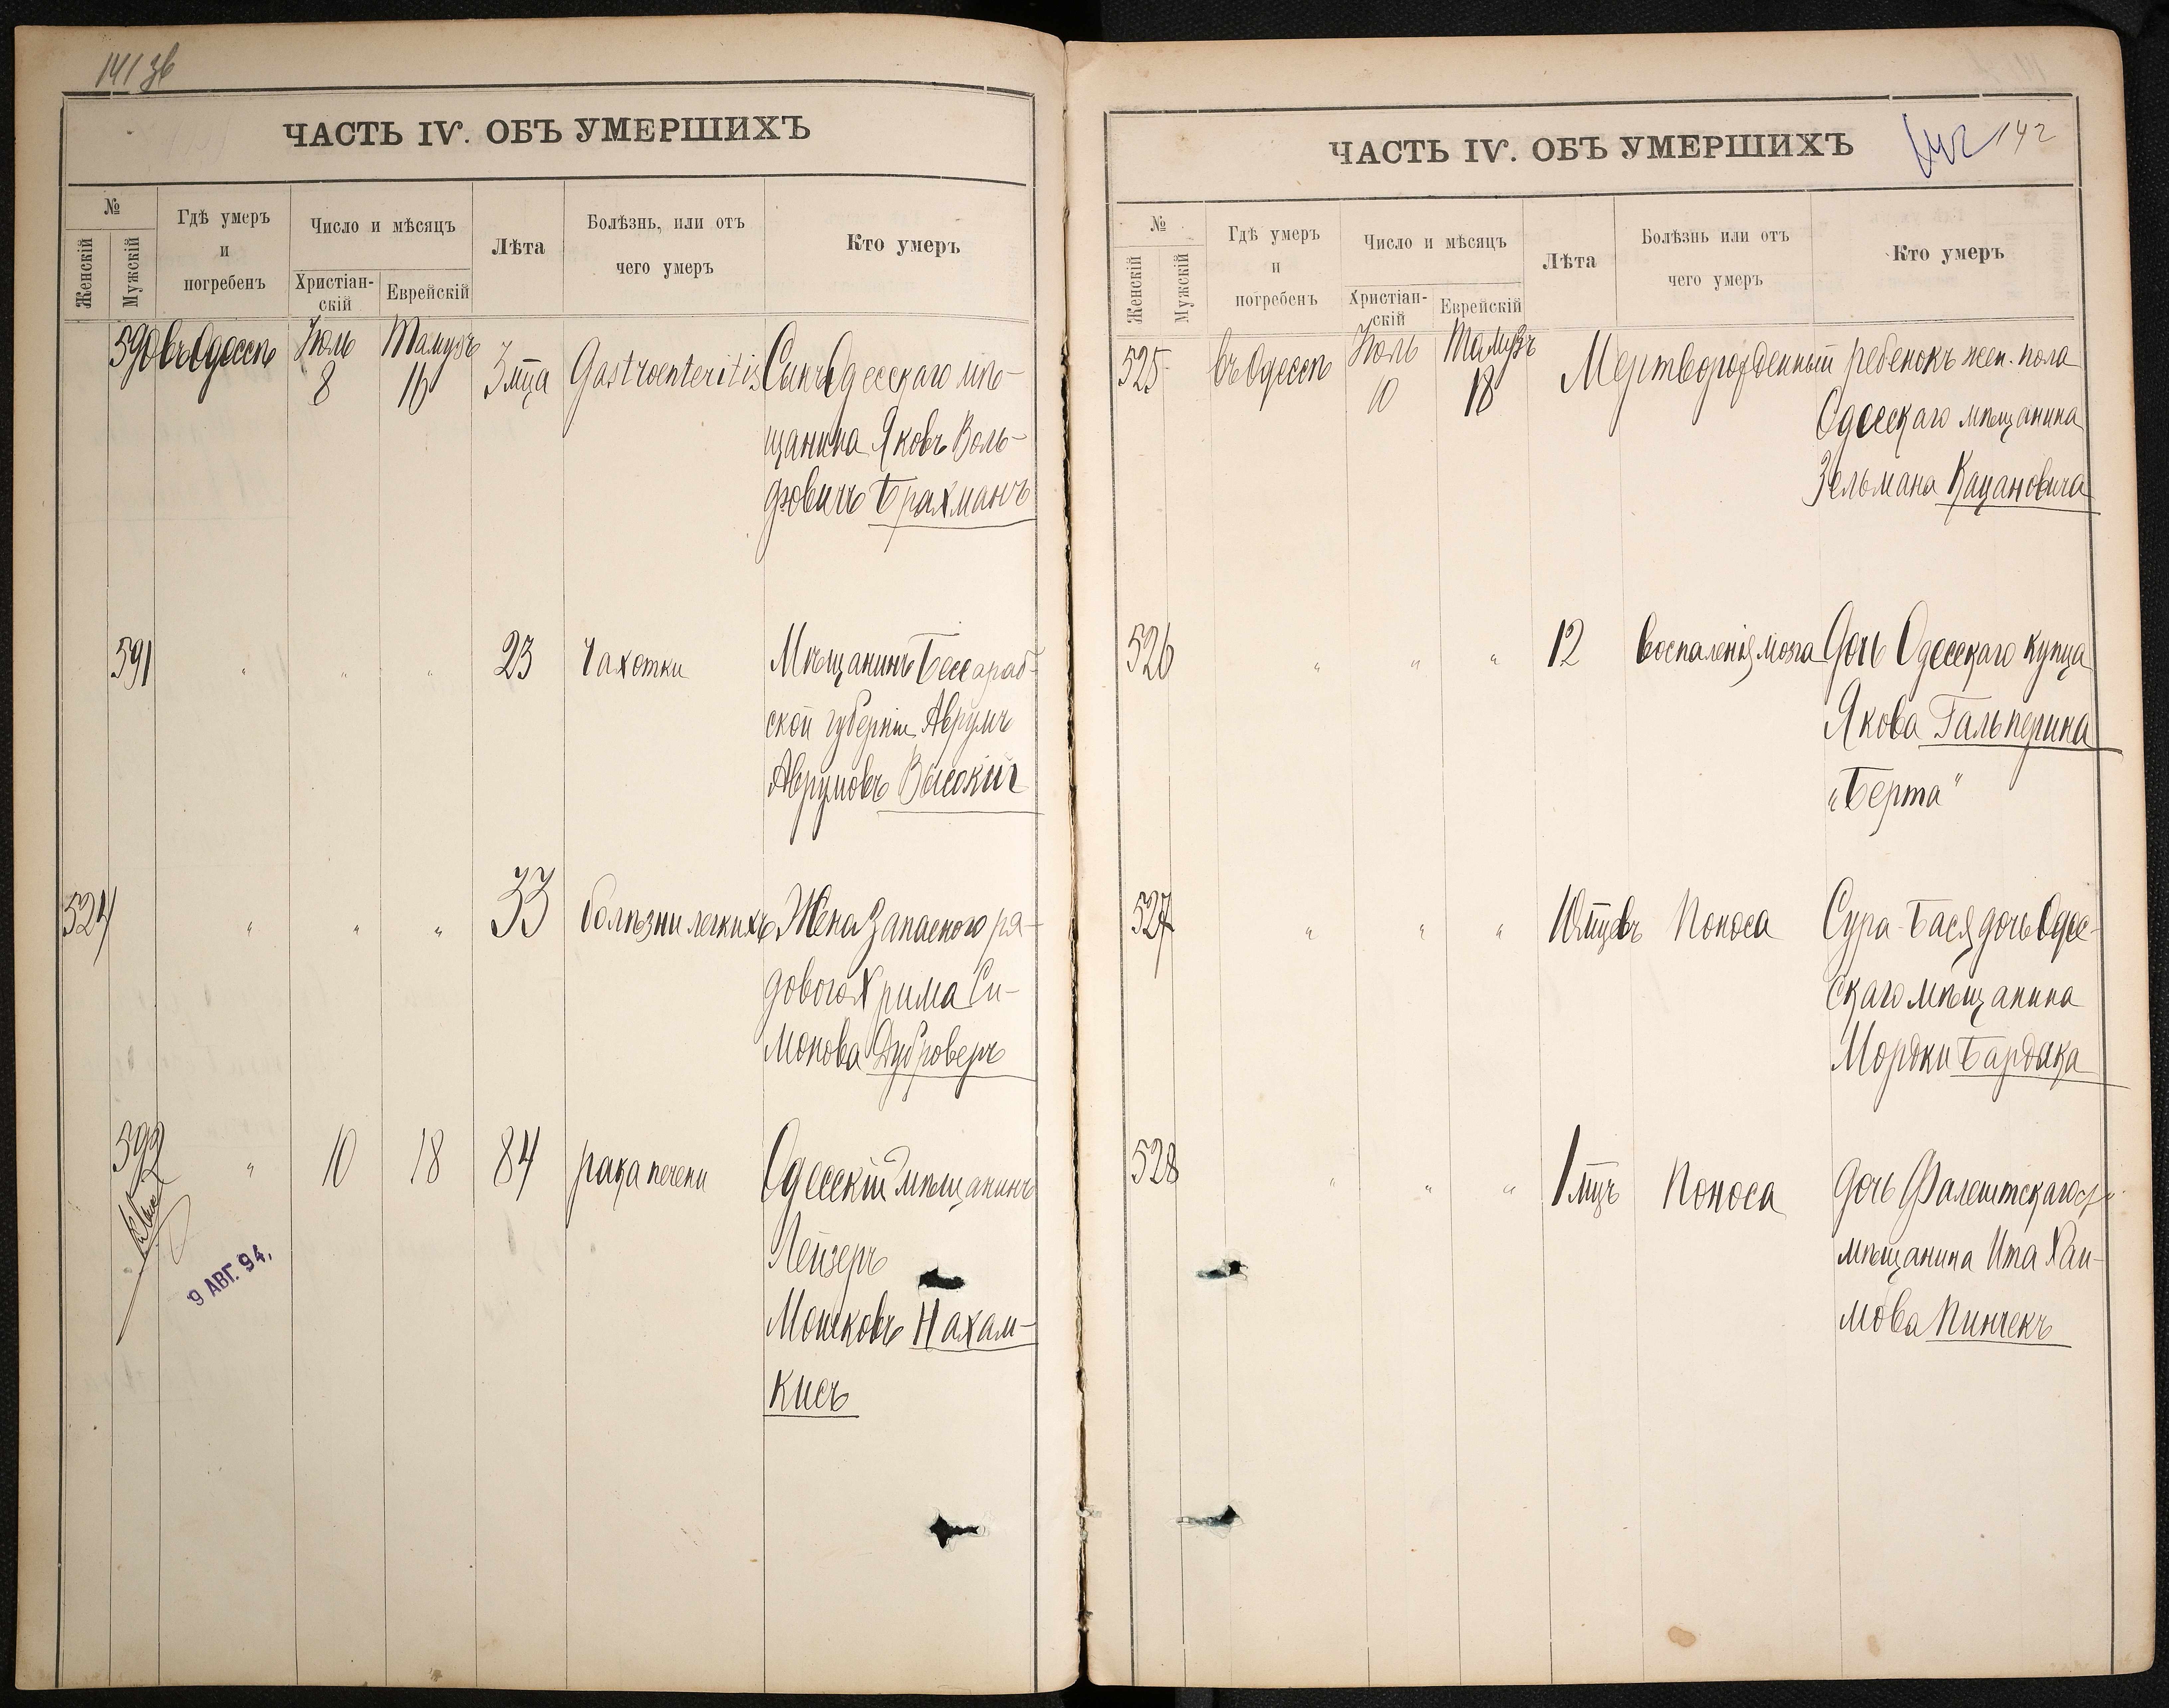 141 зв
ЧАСТЬ IV. ОБЪ УМЕРШИХЪ
№
Женскій
Мужскій
Гдѣ умеръ
и
погребенъ
Число и мѣсяцъ
Христіан-
скій
Еврейскій
Лѣта
Болѣзнь, или отъ
чего умеръ
Кто умеръ
590 въ Одессѣ Іюль 8 Тамузъ 16 3 мца Gastroenteritis Сынъ Одесскаго мѣ-
щанина Яковъ Воль-
фовичъ Брахманъ
591 " " " 23 Чахотки Мѣщанинъ Бессараб-
ской губерніи Аврумъ
Аврумовъ Высокій
524 " " " 33 болѣзни легкихъ Жена Запаснаго ря-
дового Хрима Си-
монова Дуброверъ
592 " 10 18 84 рака печени Одесскій мѣщанинъ
Лейзеръ
Мошковъ Нахам-
кисъ
9 АВГ. 94.
ЧАСТЬ IV. ОБЪ УМЕРШИХЪ
142 142
№
Женскій
Мужскій
Гдѣ умеръ
и
погребенъ
Число и мѣсяцъ
Христіан-
скій
Еврейскій
Лѣта
Болѣзнь или отъ
чего умеръ
Кто умеръ
525 въ Одессѣ Іюль 10 Тамузъ 18 Мертворожденный ребенокъ жен. пола
Одесскаго мѣщанина
Зельмана Кацановича
526 " " " 12 Воспаленія мозга Дочь Одесскаго купца
Якова Гальперина
„Берта"
527 " " " 10 мцевъ Поноса Сура-Бася дочь Одес-
скаго мѣщанина
Мордки Бардыка
528 " " " 1 мцъ Поноса Дочь Фалештскаго
мѣщанина Ита Хаи-
мова Пинчекъ